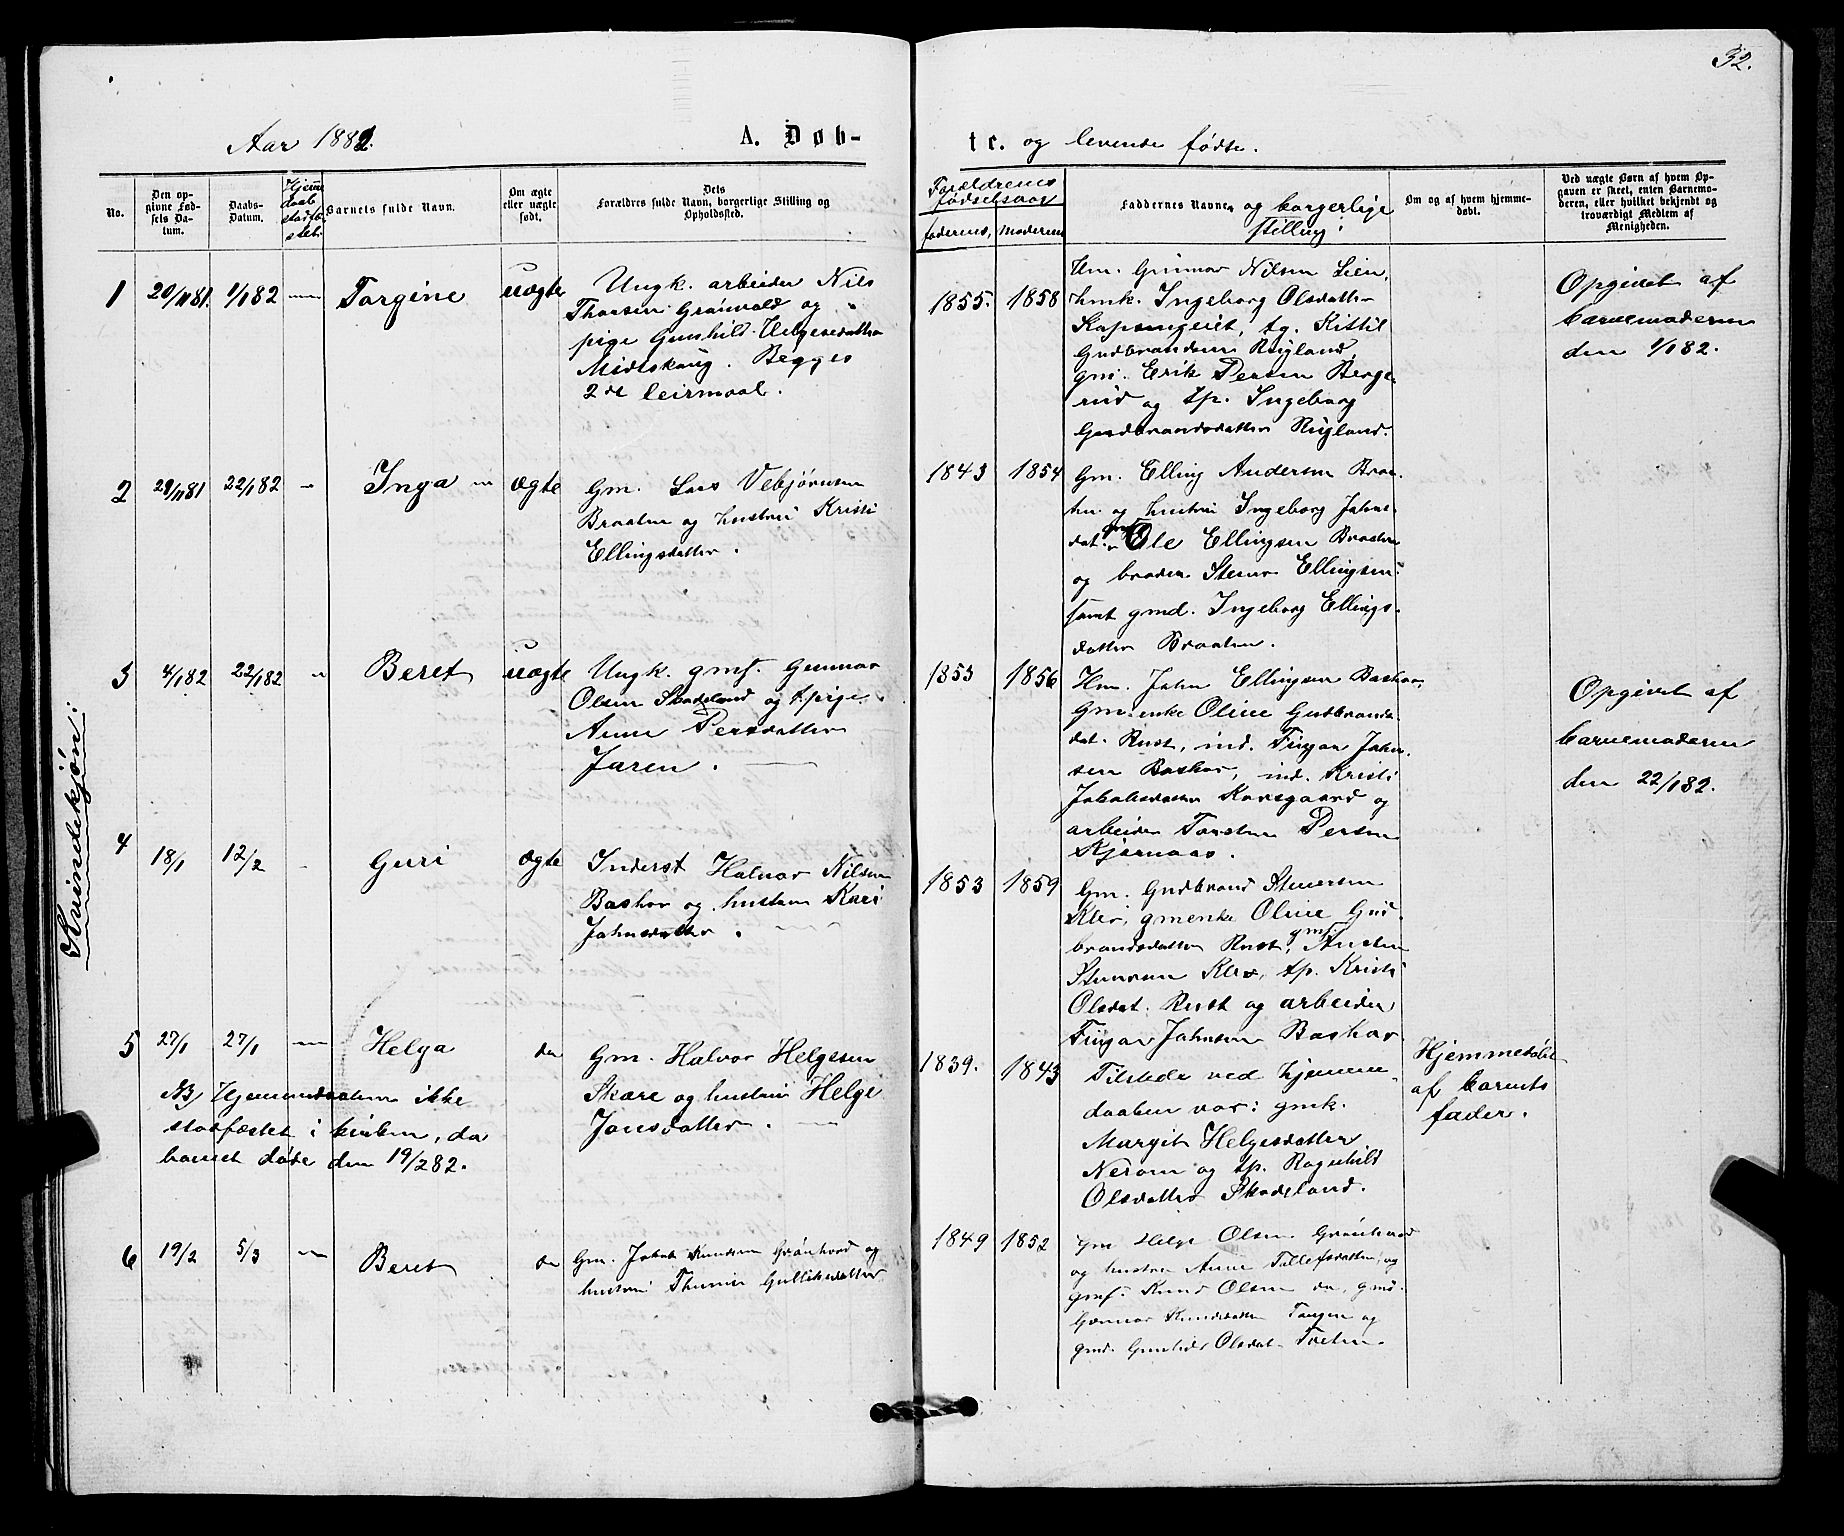 32.
Aar 1882. A. Døb-
te. og levende fødte.
No.
Den op-
givne Fød-
sels Da-
tum.
Daabs-
Datum.
Hjemme
daab
stadfæ-
stet.
Barnets fulde Navn.
Om ægte
eller uægte
født.
Dets
Forældres fulde Navn, borgerlige Stilling og
Opholdssted.
Forældrenes
fødselsaar
faderens, moderens
Faddernes Navne, og borgerlige
stilling.
Om og af hvem hjemme-
døbt.
Ved uægte Børn af hvem Op-
gaven er skeet, enten Barnemo-
deren, eller hvilket bekjendt og
troværdigt Medlem af
Menigheden.
Kvindekjøn:
1 20/11 81. 1/1 82 Torgine uægte
Ungk. arbeider Nils
Thorsen Grønvold og
pige Gunhild Helgesdatter
Midtskoug. Begges
2det leirmaal.
1855. 1858
Hm. Gunnar Nilsen Lien,
hmk. Ingeborg Olsdatter
tg. Kittil
Gudbrandsen Rugland,
gm. Erik Persen Berge-
rud og tp. Ingeborg
Gudbrandsdatter Rugland.
Opgivet af
barnemoderen
den 1/1 82.
2 29/11 81 22/1 82 Inga ægte
Gm. Lars Vebjørnsen
Braaten og hustru Kristi
Ellingsdatter.
1843 1854
Gm. Elling Andersen Braa-
ten og hustru Ingeborg Johns-
dat. gmf. Ole Ellingsen Braaten
og broder Stener Ellingsen
samt gmd. Ingeborg Ellings-
datter Braaten.
3 4/1 82 22/1 82 Beret uægte
Ungk. gmf. Gunnar
Olsen Skodeland og tpige
Anne Persdatter
Jaren.
1853 1856
Hm. John Ellingsen Bashor,
Gm. enke Oline Gudbrands-
dat. Rust, ind. Fingar John-
sen Bashor, ind. Kristi
Jakobsdatter Korsgaard og
arbeider Torsten Persen
Kjørnaas.
Opgivet af
barnemoderen
den 22/1 82.
4 18/1 12/2 Guri ægte
Inderst Halvor Nilsen
Bashor og hustru Kari
Johnsdatter.
1853 1859
Gm. Gudbrand Stenersen
Klev, gmenke Oline Gud-
brandsdatter Rust, gmf. Austen
Stenersen Klev, tp. Kristi
Olsdat. Rust og arbeider
Fingar Johnsen Bashor
5 27/1 27/1 Helga do
NB. Hjemmedaaben ikke
stadfæstet i kirken, da
barnet døde den 19/2 82.
Gm. Halvor Helgesen
Skare og hustru Helge
Jonsdatter.
1839. 1843
Tilstede ved hjemme-
daaben var: gmk.
Margit Helgesdatter
Nerom og tp. Ragnhild
Olsdatter Skodeland.
Hjemmedøbt
af barnets
fader.
6 19/2 5/3 Beret do
Gm. Jakob Knudsen Grønhovd og
hustru Thurine Gulliksdatter
1849 1852
Gm Helge Olsen Grønhovd
og hustru Anne Tollefsdatter, og
gmf. Knud Olsen do, gmd.
Gunnor Knudsdatter Tangen og
gmd. Gunhild Olsdat. Tveten.